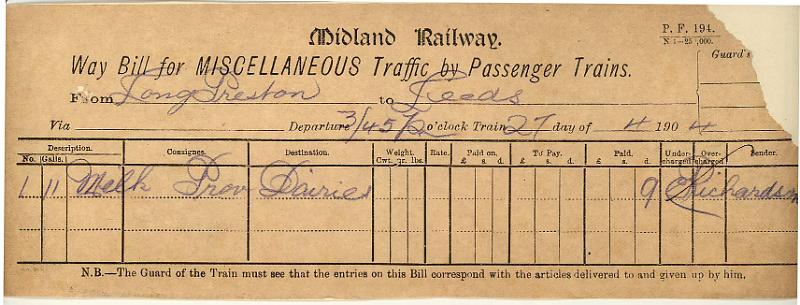 Midland Railway.
P. F. 194.
Way Bill for MISCELLANEOUS Traffic by Passenger Trains.
Guard's
From Long Preston to Leeds
Via Departure 3/45 P o'clock Train 27 day of 4 190 4
Description. Consignee. Destination. Weight. Rate. Paid on. To Pay. Paid. Under-charged Over-charged Sender.
No. Galls. Cwt. qr. lbs. £ s. d. £ s. d. £ s. d.
1 11 Melk Prov Dairies 9 Richardson
N.B.—The Guard of the Train must see that the entries on this Bill correspond with the articles delivered to and given up by him.